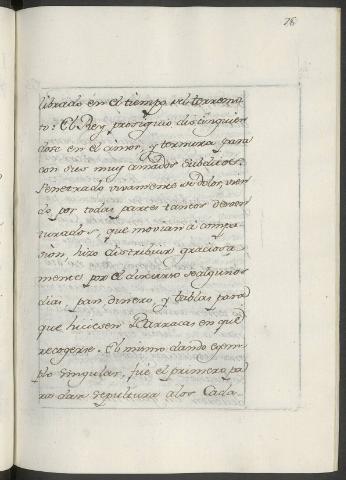 78
librado en el tiempo del terremo
to: El Rey prosiguio distinguien
dose en el amor, y ternura para
con sus muy amados subditos.
Penetrado vivamente de dolor, vien
do, por todas partes tantos desven
turados, que movian à compa-
sion, hizo distribuir graciosa
mente por el discurso de algunos
dias, pan dinero, y tablas para
que hiciesen Barracas en que
recogerse. El mismo dando exem
plo singular, fué el primero pa
ra dar sepultura a los Cada-